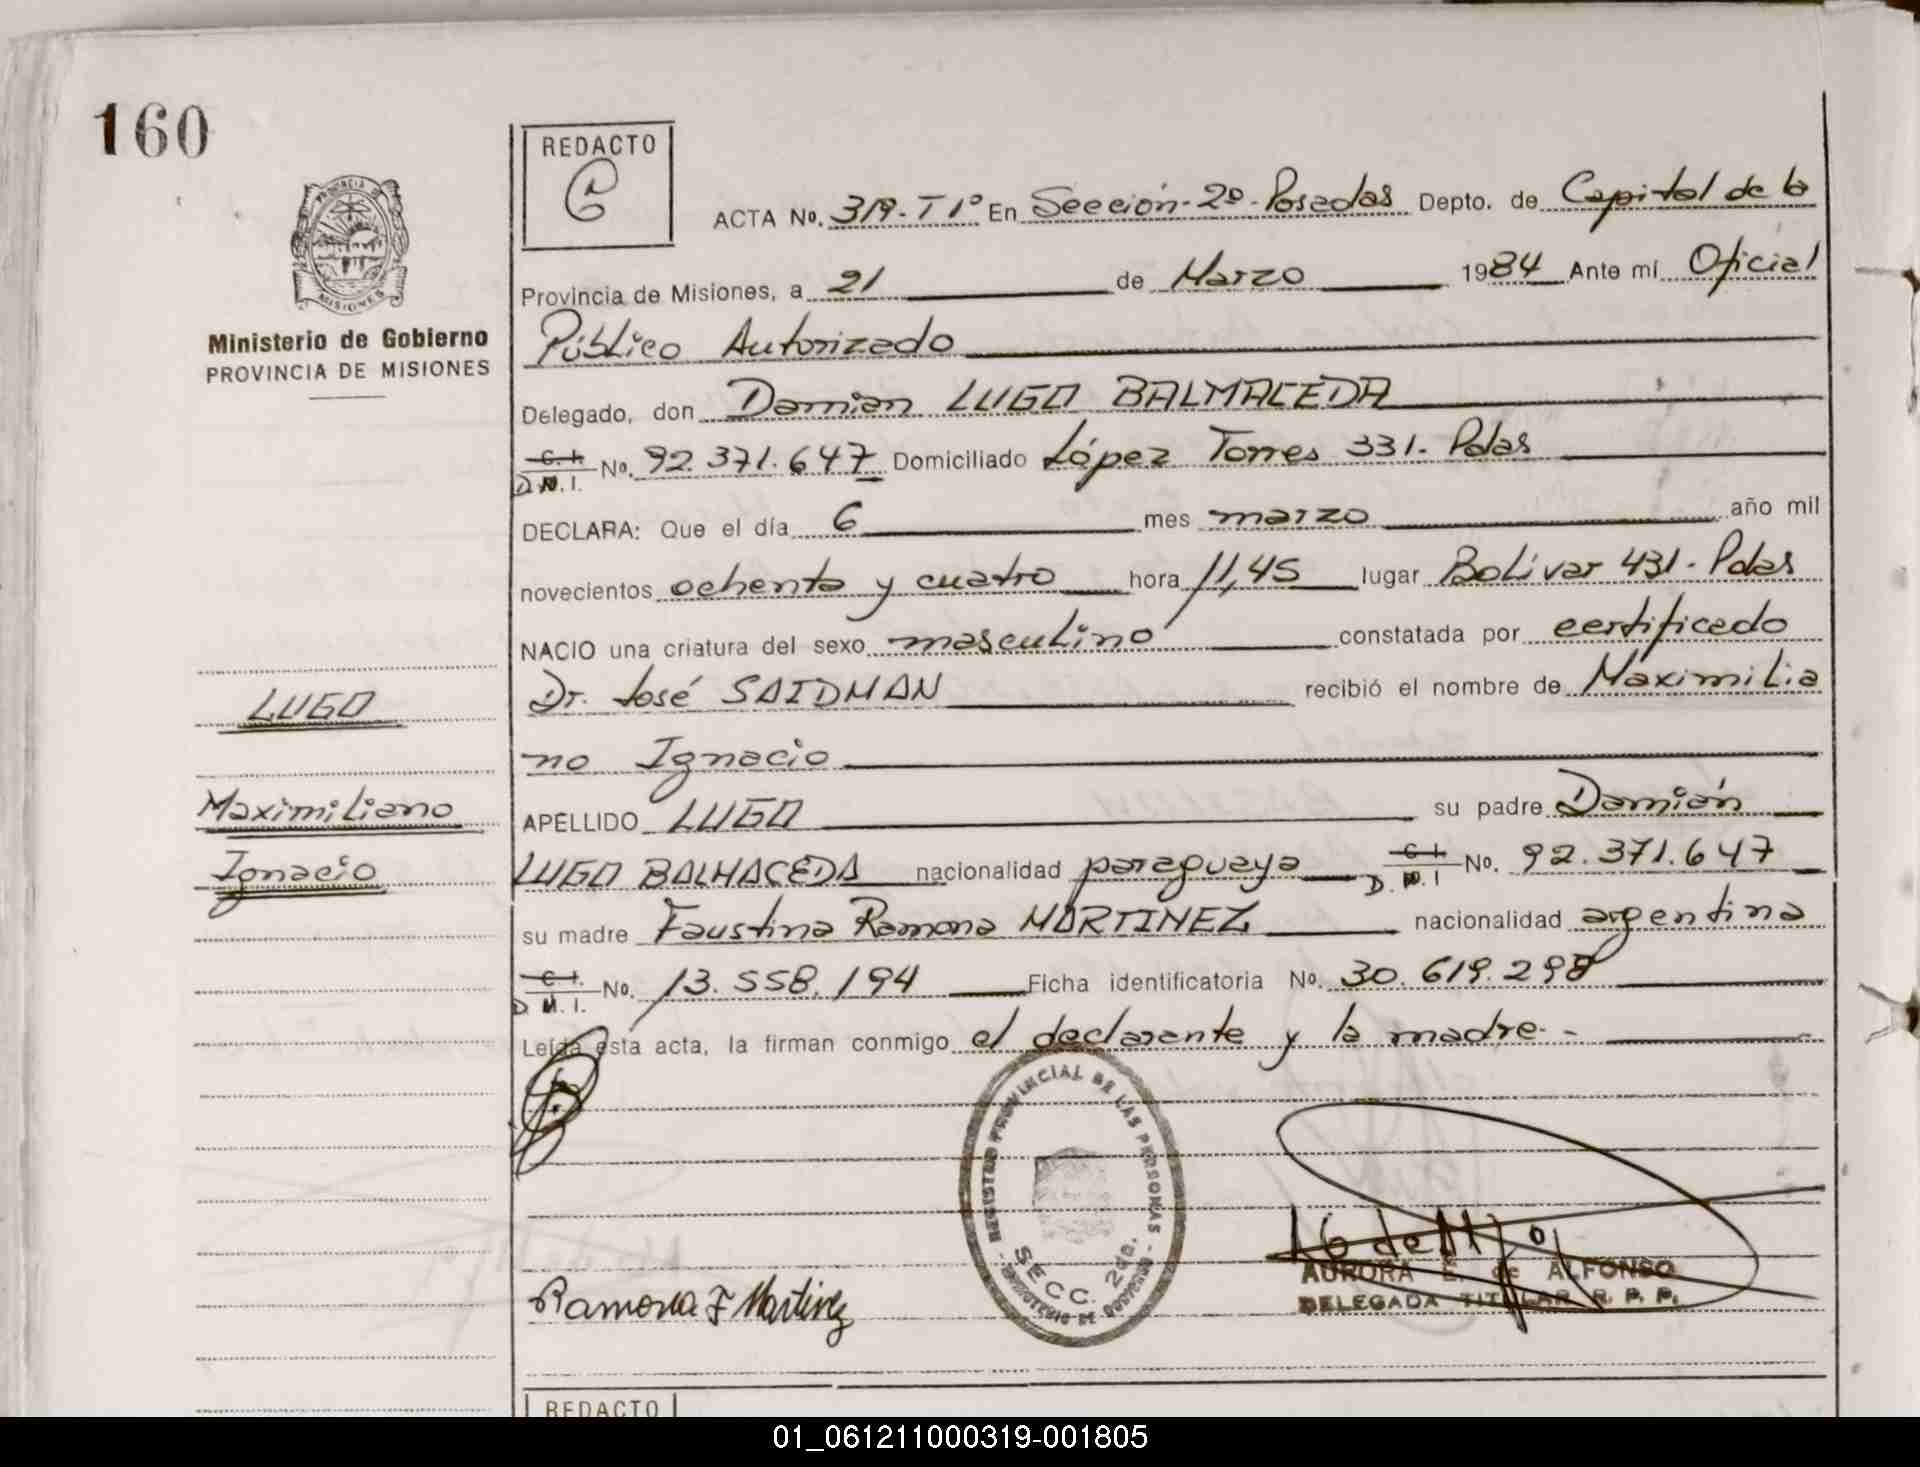 160
REDACTO
C
ACTA No. 319-T1º En Sección-2º-Posadas Depto. de Capital de la
Provincia de Misiones, a 21 de Marzo 1984 Ante mí Oficial
Público Autorizado
Delegado, don Damian LUGO BALMACEDA
C. I. No. 92.371.647 Domiciliado López Torres 331- Pdas
D.N.I.
DECLARA: Que el día 6 mes marzo año mil
novecientos ochenta y cuatro hora 11,45 lugar Bolívar 431- Pdas
NACIO una criatura del sexo masculino constatada por certificado
Dr. José SAIDMAN recibió el nombre de Maximilia
no Ignacio
APELLIDO LUGO su padre Damián
LUGO BALMACEDA nacionalidad paraguaya C. I. No. 92.371.647
D.N.I
su madre Faustina Ramona MARTINEZ nacionalidad argentina
C. I. No. 13.558.194 Ficha identificatoria No. 30.619.298
D N. I.
Leída esta acta, la firman conmigo el declarante y la madre.-
PROVINCIA DE
MISIONES
Ministerio de Gobierno
PROVINCIA DE MISIONES
LUGO
Maximiliano
Ignacio
REGISTRO PROVINCIAL DE LAS PERSONAS
SECC. 2da.
MINISTERIO DE GOBIERNO
AURORA E. de ALFONSO
DELEGADA TITULAR R. P. P.
Ramona F Martinez
REDACTO
01_061211000319-001805